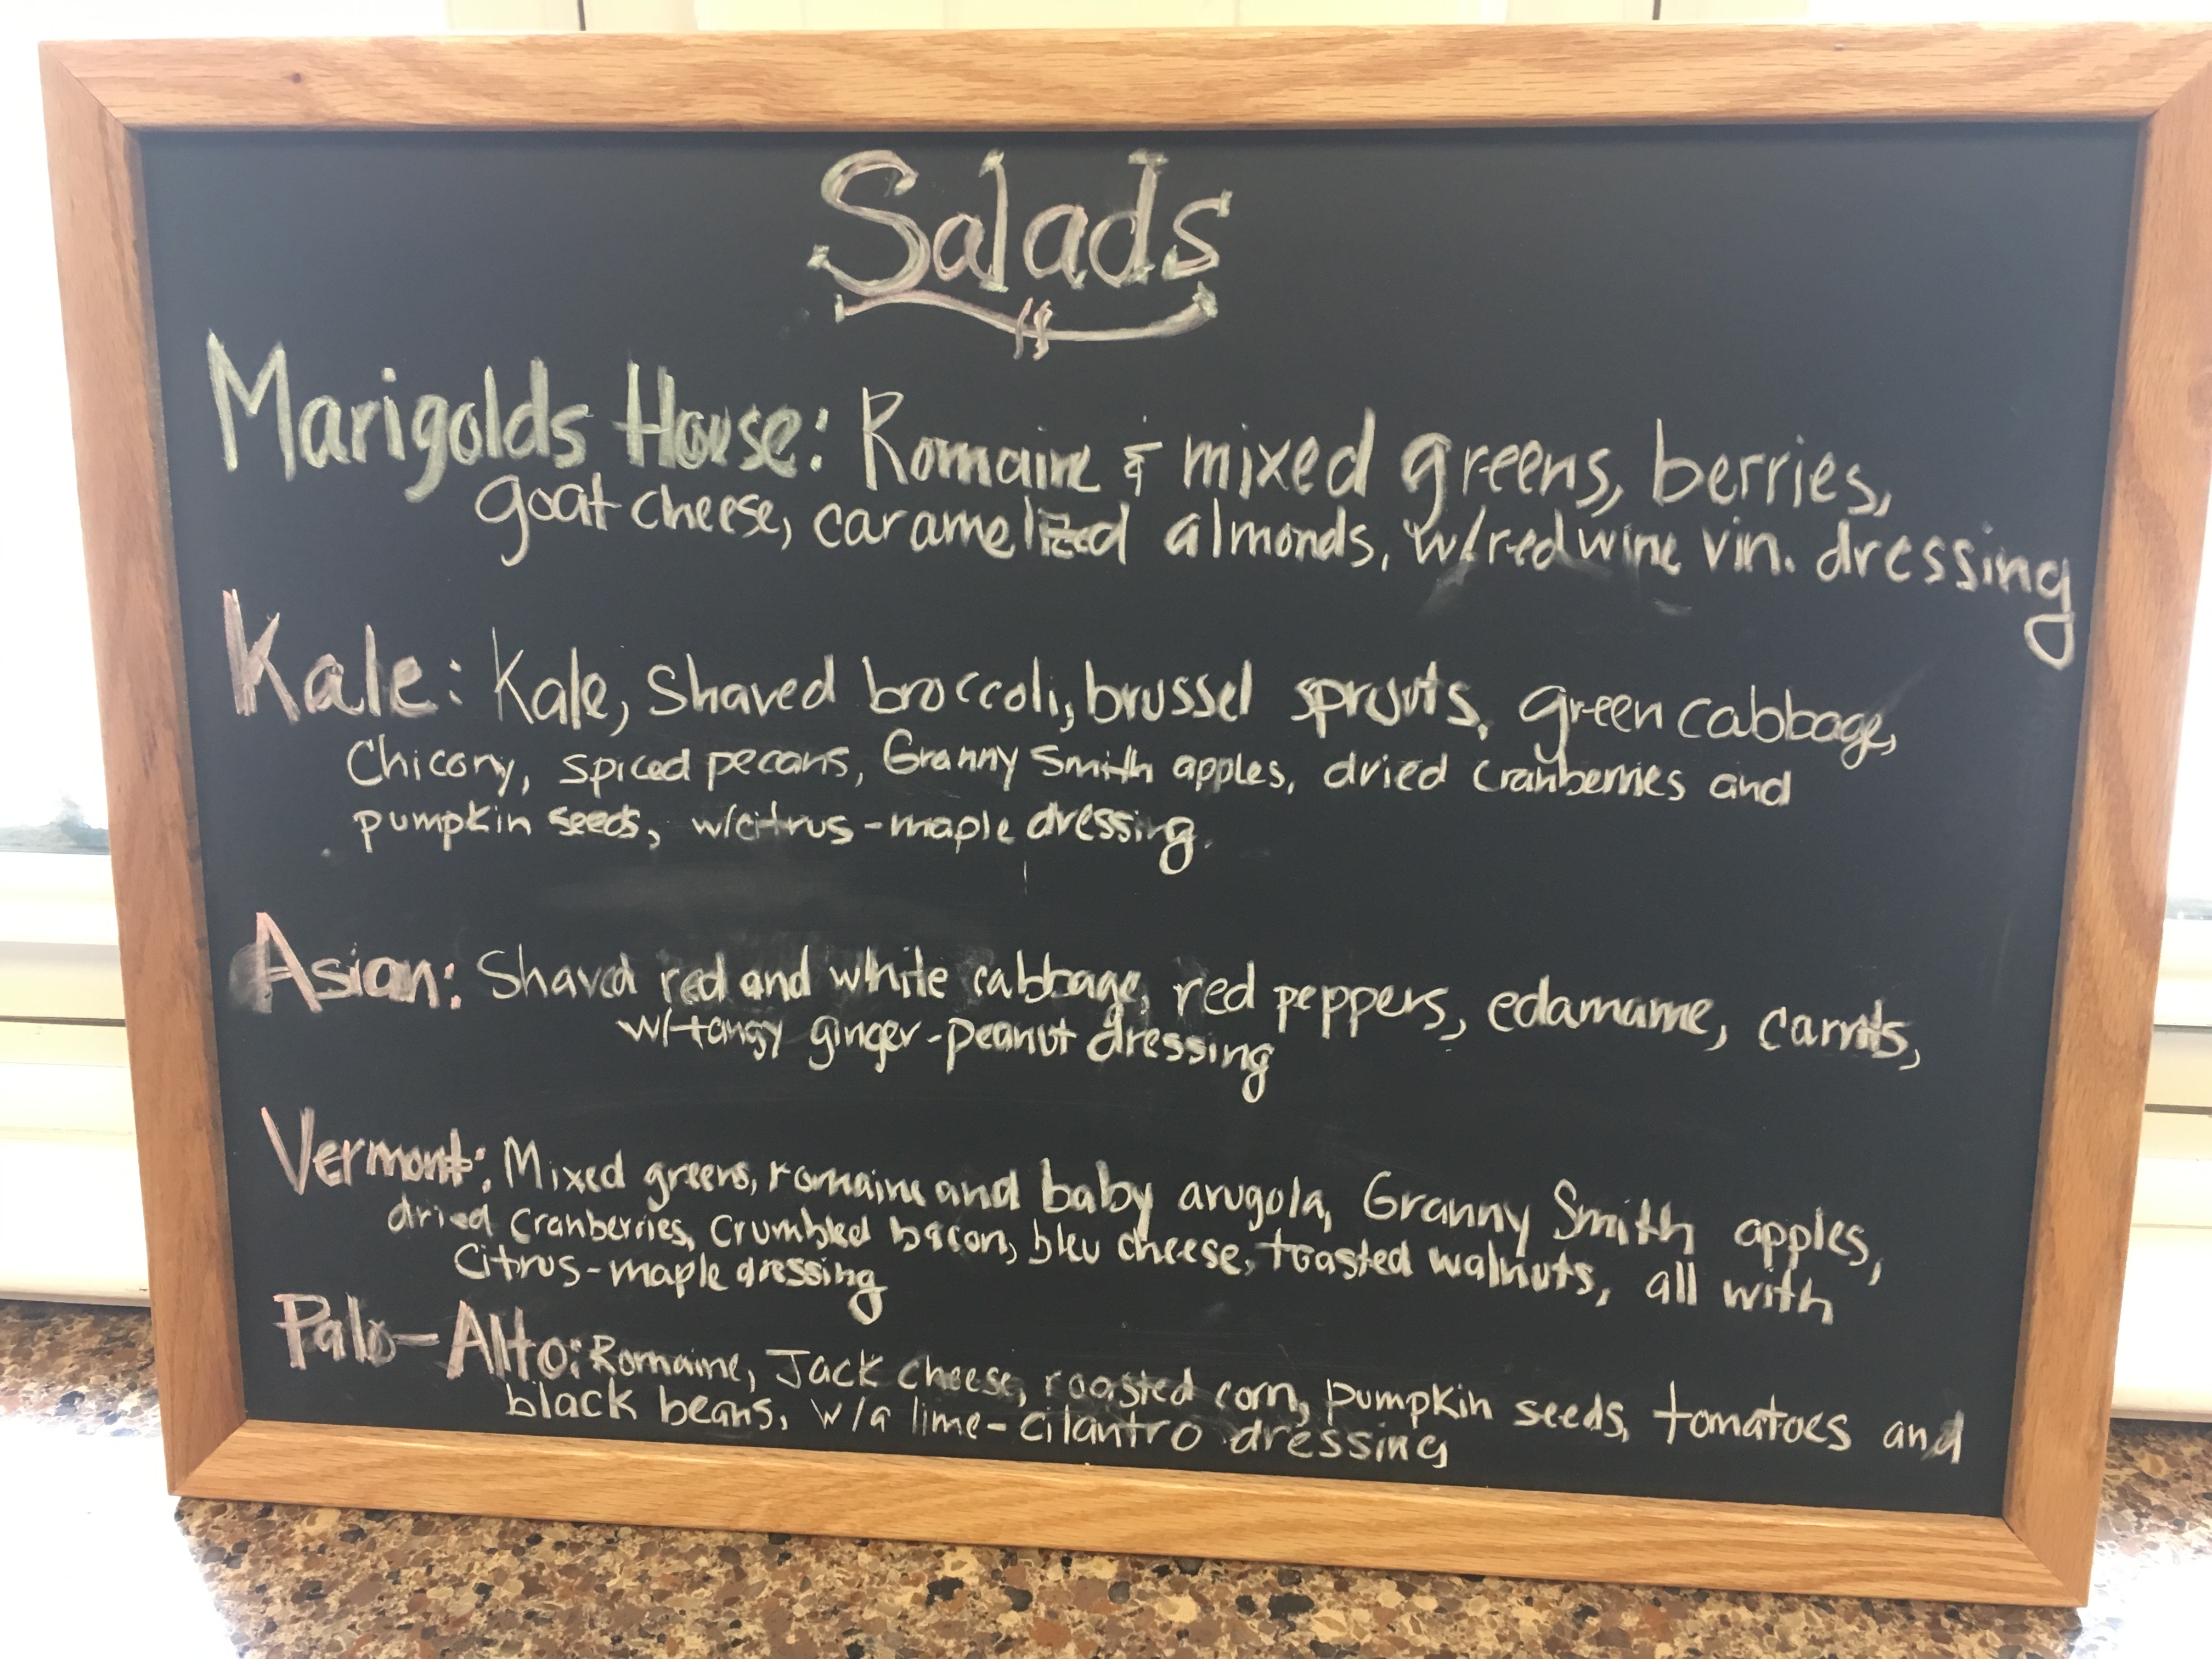 Salads
Marigolds House: Romaine & mixed greens, berries,
goat cheese, caramelized almonds, w/red wine vin. dressing
Kale: Kale, Shaved broccoli, brussel sprouts, green cabbage,
Chicory, spiced pecans, Granny Smith apples, dried cranberries and
pumpkin seeds, w/citrus-maple dressing.
Asian: Shaved red and white cabbage, red peppers, edamame, carrots,
w/tangy ginger-peanut dressing
Vermont: Mixed greens, romaine and baby arugola, Granny Smith apples,
dried Cranberries, Crumbled bacon, bleu cheese, toasted walnuts, all with
Citrus-maple dressing
Palo-Alto: Romaine, Jack cheese, roasted corn, pumpkin seeds, tomatoes and
black beans, w/a lime-cilantro dressing